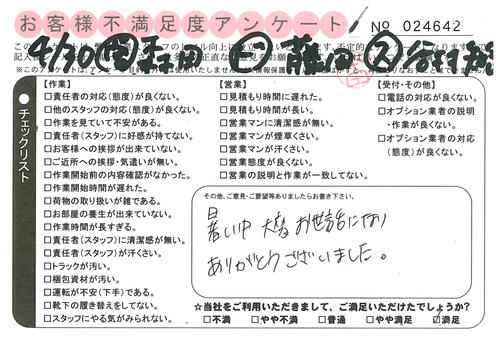 お客様不満足度アンケート
No 024642
4/30
チェックリスト
【作業】
□責任者の対応(態度)が良くない。
□他のスタッフの対応(態度)が良くない。
□作業を見ていて不安がある。
□責任者(スタッフ)に好感が持てない。
□お客様への挨拶が出来ていない。
□ご近所への挨拶・気遣いが無い。
□作業開始前の内容確認がなかった。
□作業開始時間が遅れた。
□荷物の取り扱いが雑である。
□お部屋の養生が出来ていない。
□作業時間が長すぎる。
□責任者(スタッフ)に清潔感が無い。
□責任者(スタッフ)が汗くさい。
□トラックが汚い。
□梱包資材が汚い。
□運転が不安(下手)である。
□靴下の履き替えをしてない。
□スタッフにやる気がみられない。
【営業】
□見積もり時間に遅れた。
□見積もり時間が長い。
□営業マンが清潔感が無い。
□営業マンが煙草くさい。
□営業マンが汗くさい。
□営業態度が良くない。
□営業の説明と作業が一致してない。
【受付・その他】
□電話の対応が良くない。
□オプション業者の説明
・作業が良くない。
□オプション業者の対応
(態度)が良くない。
その他、ご意見・ご要望等ありましたらお書き下さい。
暑い中 大変お世話になり
ありがとうございました。
☆当社をご利用いただきまして、ご満足いただけたでしょうか?
□不満 □やや不満 □普通 □やや満足 ☑満足